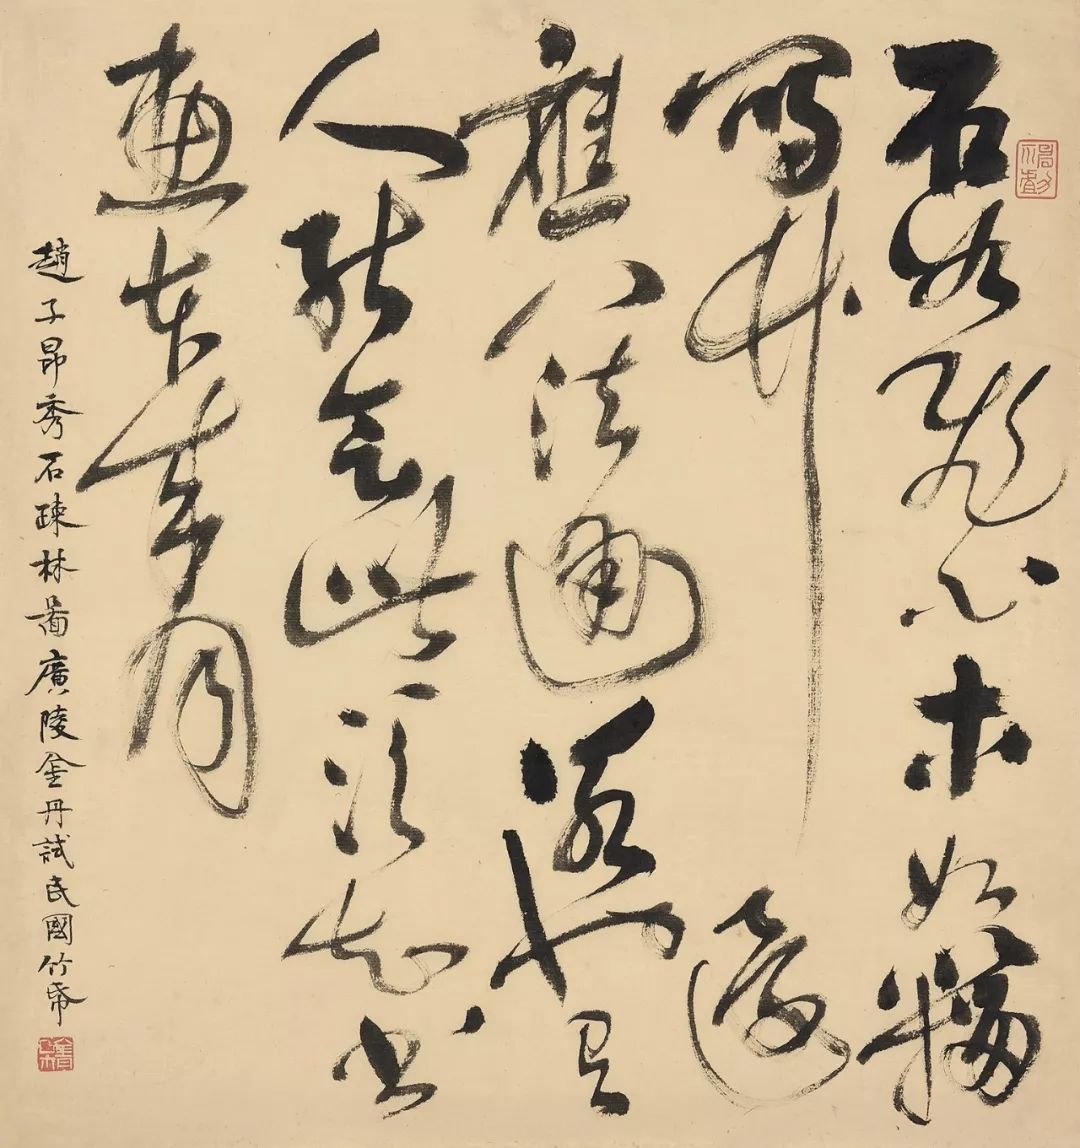 石如飛白木如籀
寫竹還
應八法通若也有
人能會此須知書
畫本來同
趙子昂秀石疎林圖廣陵金丹試民國竹帋